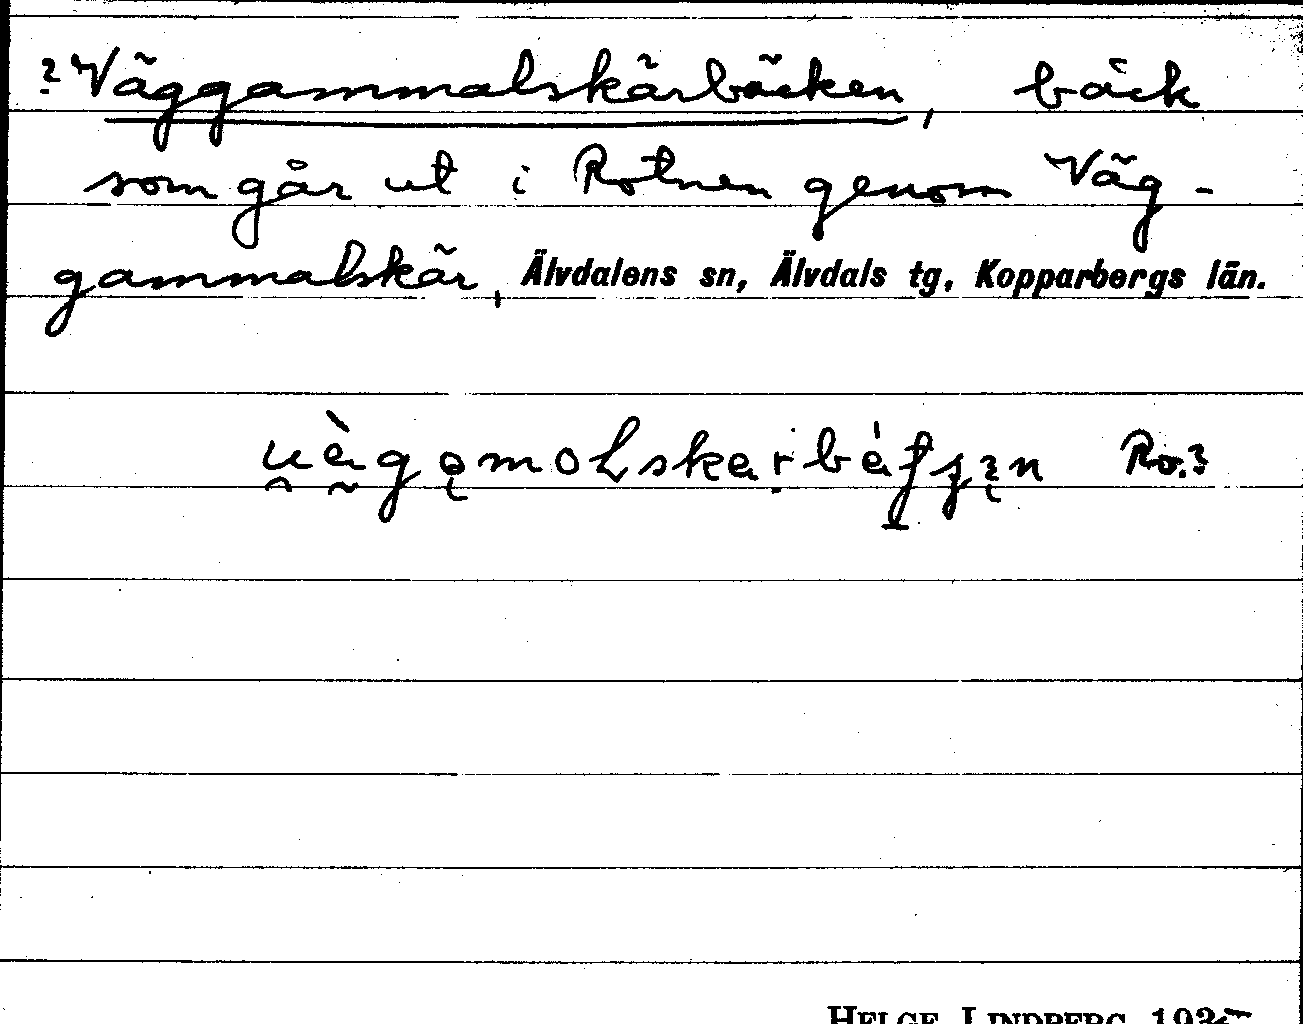 ? Väggammalskärbäcken, bäck
som går ut i Rotnen genom Väg-
gammalskär, Älvdalens sn, Älvdals tg, Kopparbergs län.
Ro.?
HELGE LINDBERG 1935